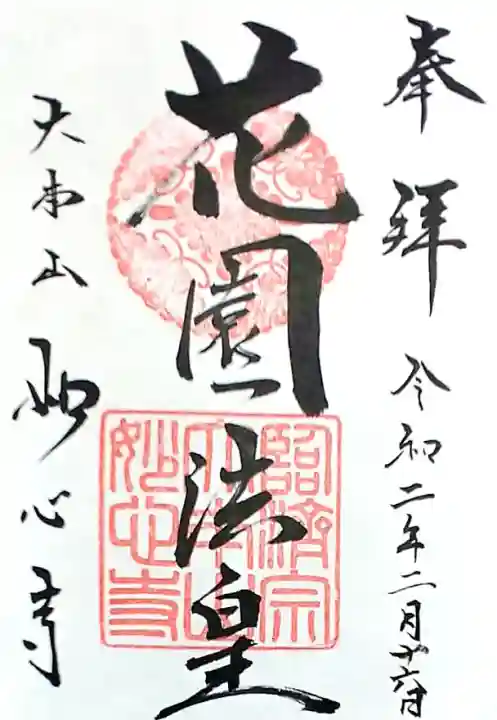 奉拝 令和二年二月十六日
花園法皇
大本山 妙心寺
臨済宗
大本山
妙心寺